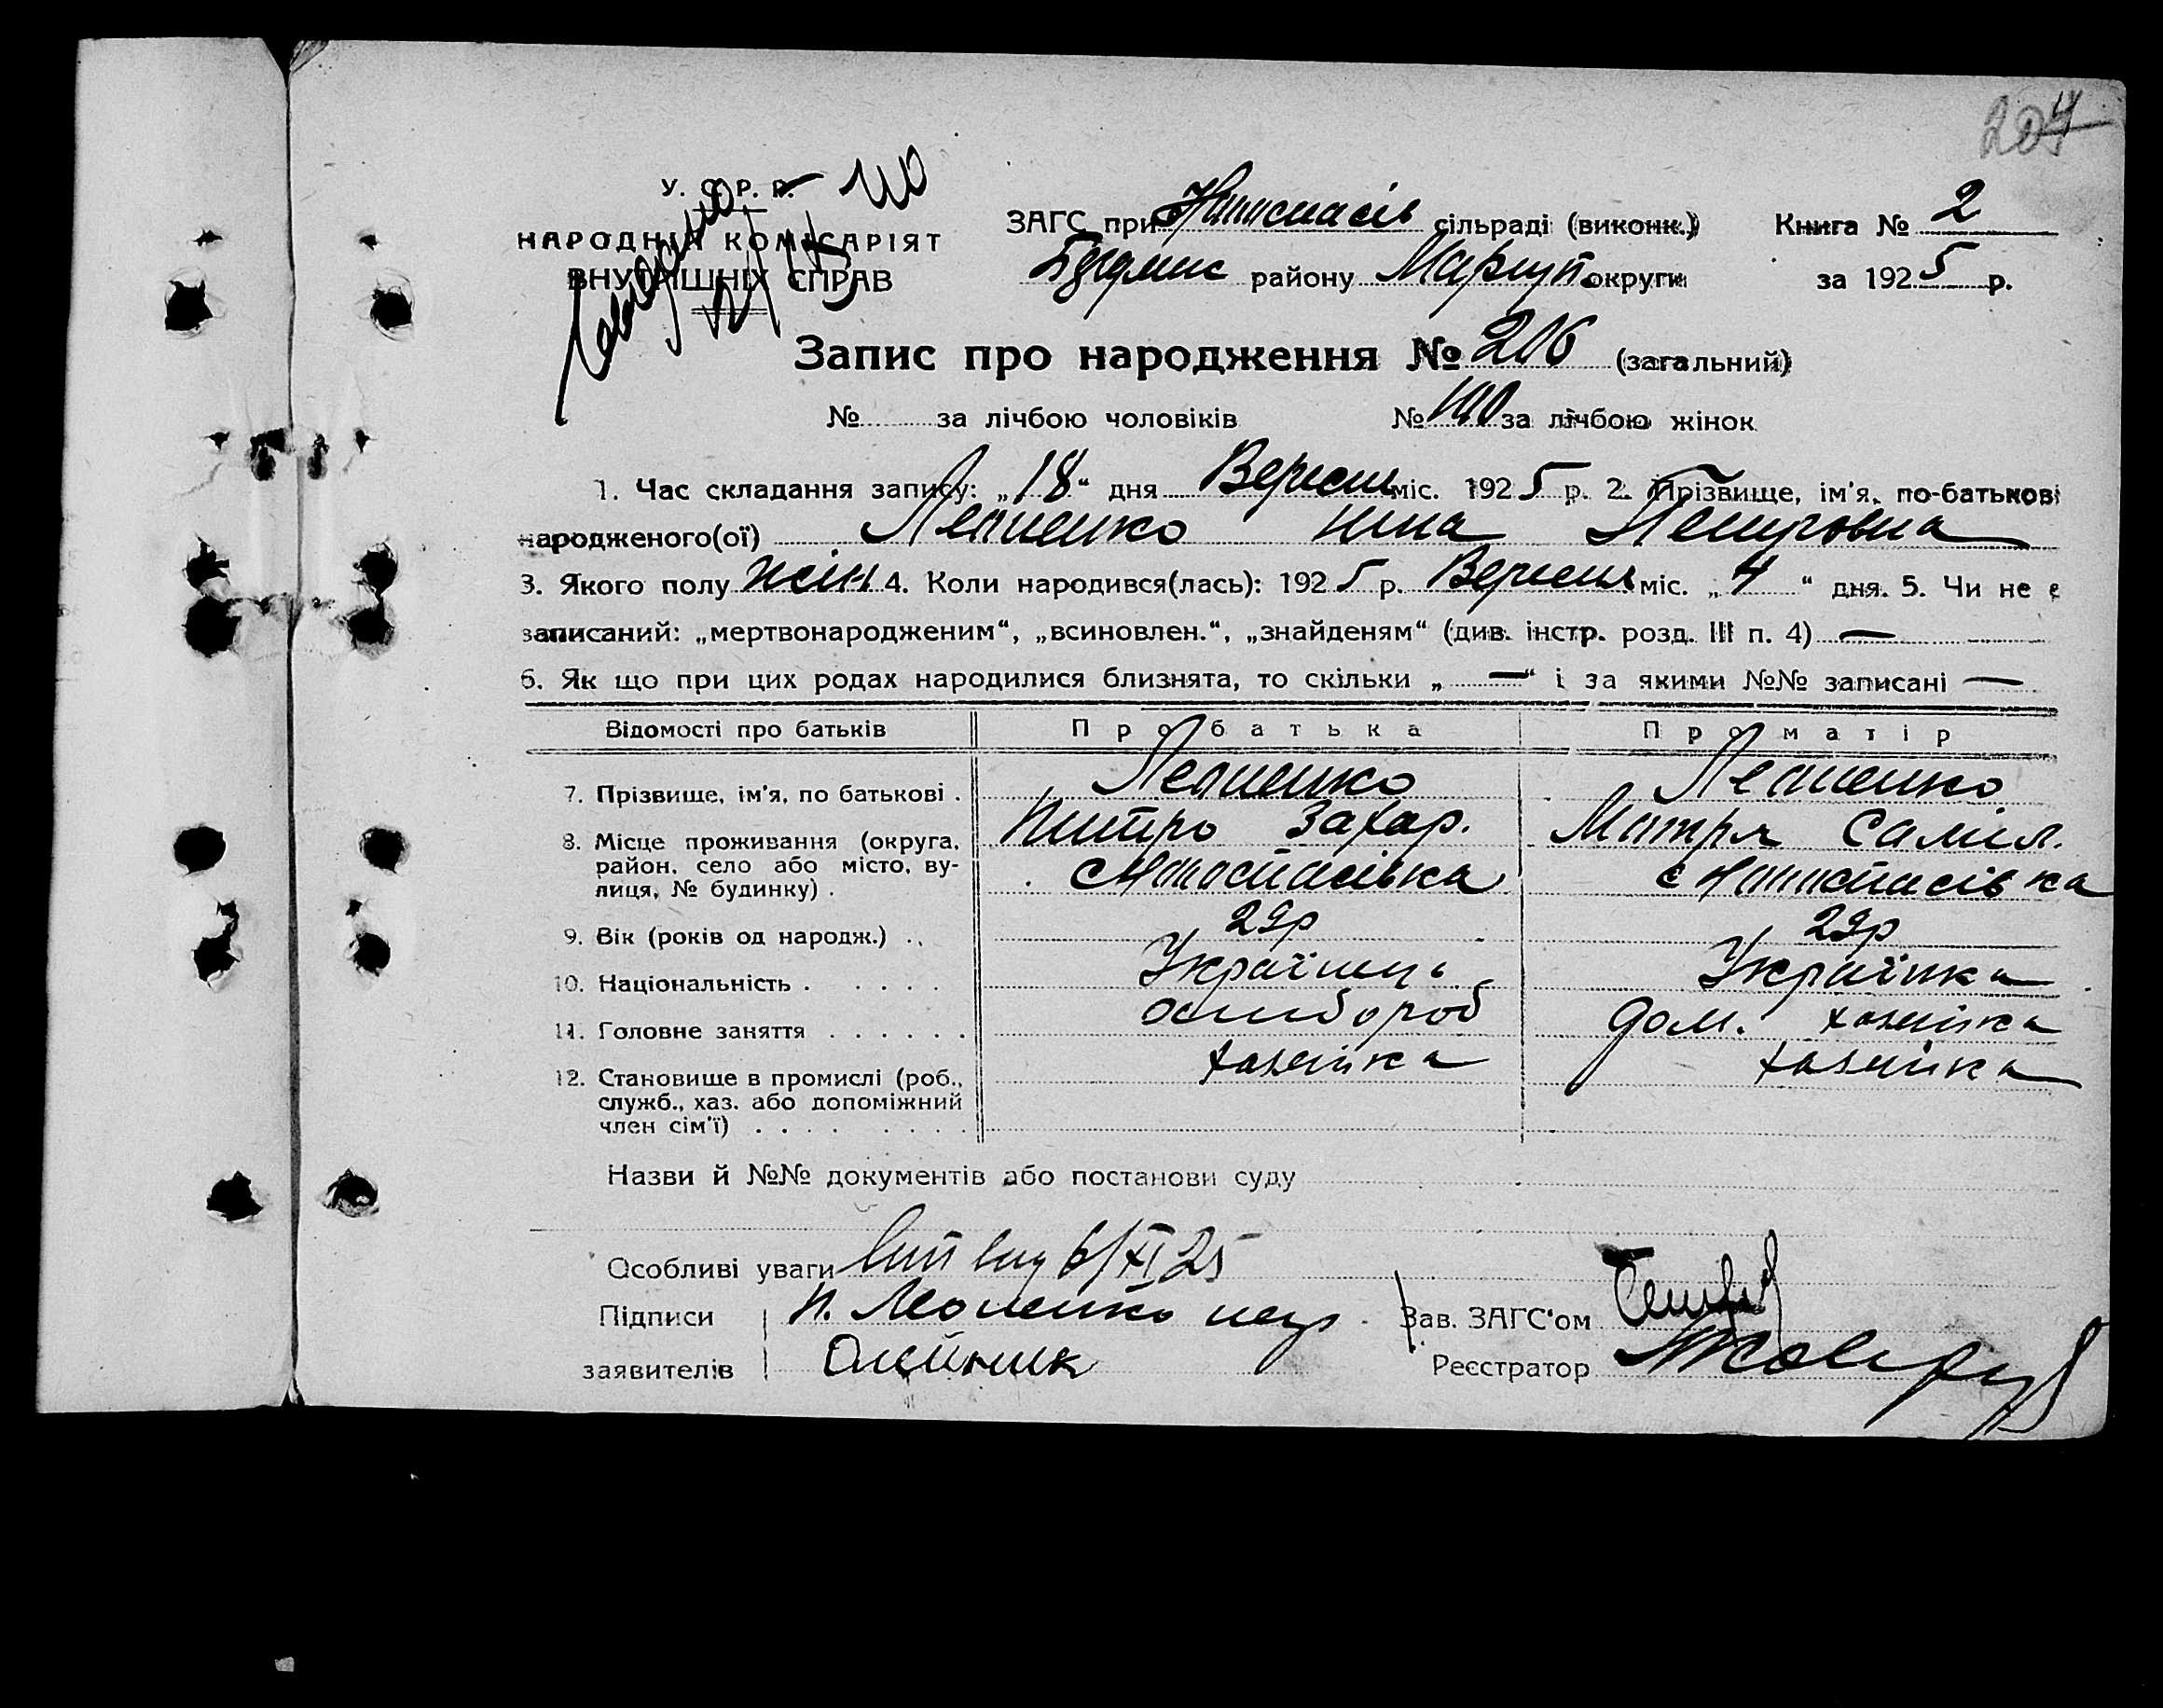 204
У. С. Р. Р.
НАРОДНІЙ КОМІСАРІЯТ
ВНУТРІШНІХ СПРАВ
ЗАГС при сільраді (виконк.) Книга № 2
району Маріуп. округи за 1925 р.
Запис про народження № 206 (загальний)
№ за лічбою чоловіків № 100 за лічбою жінок
1. Час складання запису: „18“ дня Вересня міс. 1925 р. 2. Прізвище, ім'я, по-батькові
народженого(ої) Лепненко Нина Петровна
3. Якого полу жін. 4. Коли народився(лась): 1925 р. Вересня міс. „4“ дня. 5. Чи не є
записаний: „мертвонародженим“, „всиновлен.“, „знайденям“ (див. інстр. розд. III п. 4) —
6. Як що при цих родах народилися близнята, то скільки „—“ і за якими №№ записані —
Відомості про батьків Про батька Про матір
7. Прізвище, ім'я, по батькові . Лепненко Лепненко
Питро Захар. Мотря Саміл.
8. Місце проживання (округа,
район, село або місто, ву-
лиця, № будинку) . с Новоспасівка с Новоспасівка
9. Вік (років од народж.) . . 29р 29р
10. Національність . . . . . Українец Українка
11. Головне заняття . . . . . . дом. хазяйка
12. Становище в промислі (роб., хазяйка хазяйка
служб., хаз. або допоміжний
член сім'ї) . . . . . . . .
Назви й №№ документів або постанови суду
Особливі уваги 6/XI 25
Підписи П. Зав. ЗАГС'ом
заявителів Олійник Реєстратор